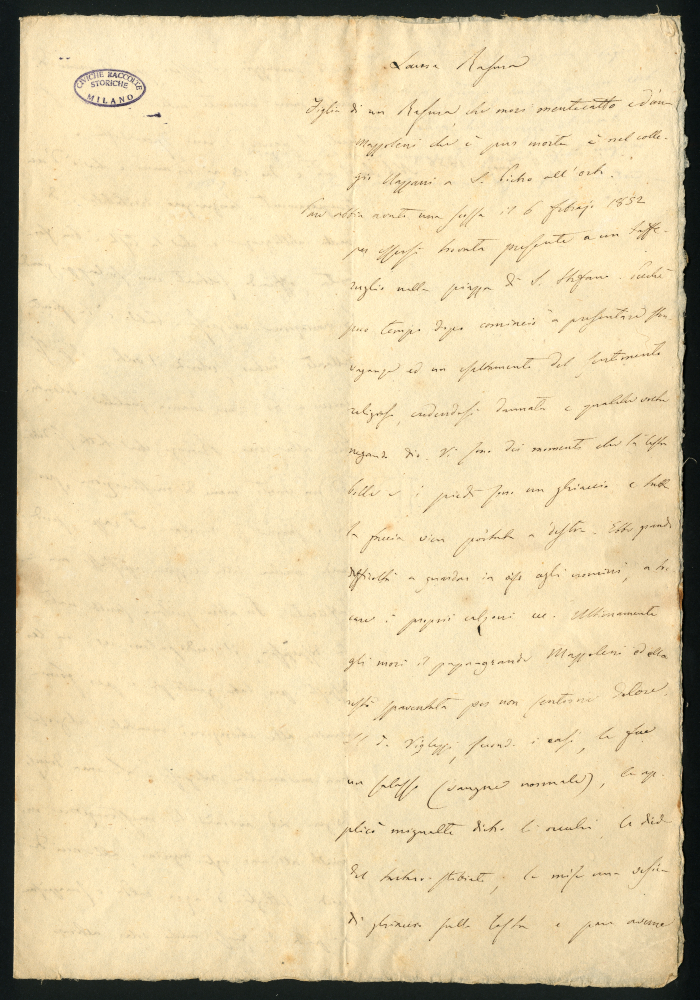 CIVICHE RACCOLTE
STORICHE
MILANO
Rafura
Figlia di un Rafura, che morì mentecatto e d'una
Mazzoleni che è pur morta, è nel colle-
gio a S. Pietro all'orto.
Pare abbia avuta una scossa il 6 febrajo 1852
per essersi trovata presente a un taffe-
ruglio nella piazza di S. Stefano.
poco tempo dopo cominciò a presentare stra-
vaganze ed un esaltamento del sentimento
religioso, credendosi dannata e qualche volta
negando dio. Vi sono dei momenti che la testa
bolle e i piedi sono un ghiaccio e tutta
la faccia vien portata a destra. Ebbe grande
difficoltà a guardar in viso agli uomini, a toc-
care i propri calzoni ec. Ultimamente
gli morì il papàgrande Mazzoleni ed ella
restò spaventata per non sentirne dolore.
Il D. Viglezzi, secondo i casi, le fece
un salasso (sangue normale), le ap-
plicò mignatte dietro le orecchi, le diede
del tartaro stibiato, le mise una vescica
di ghiaccio sulla testa e pare averne